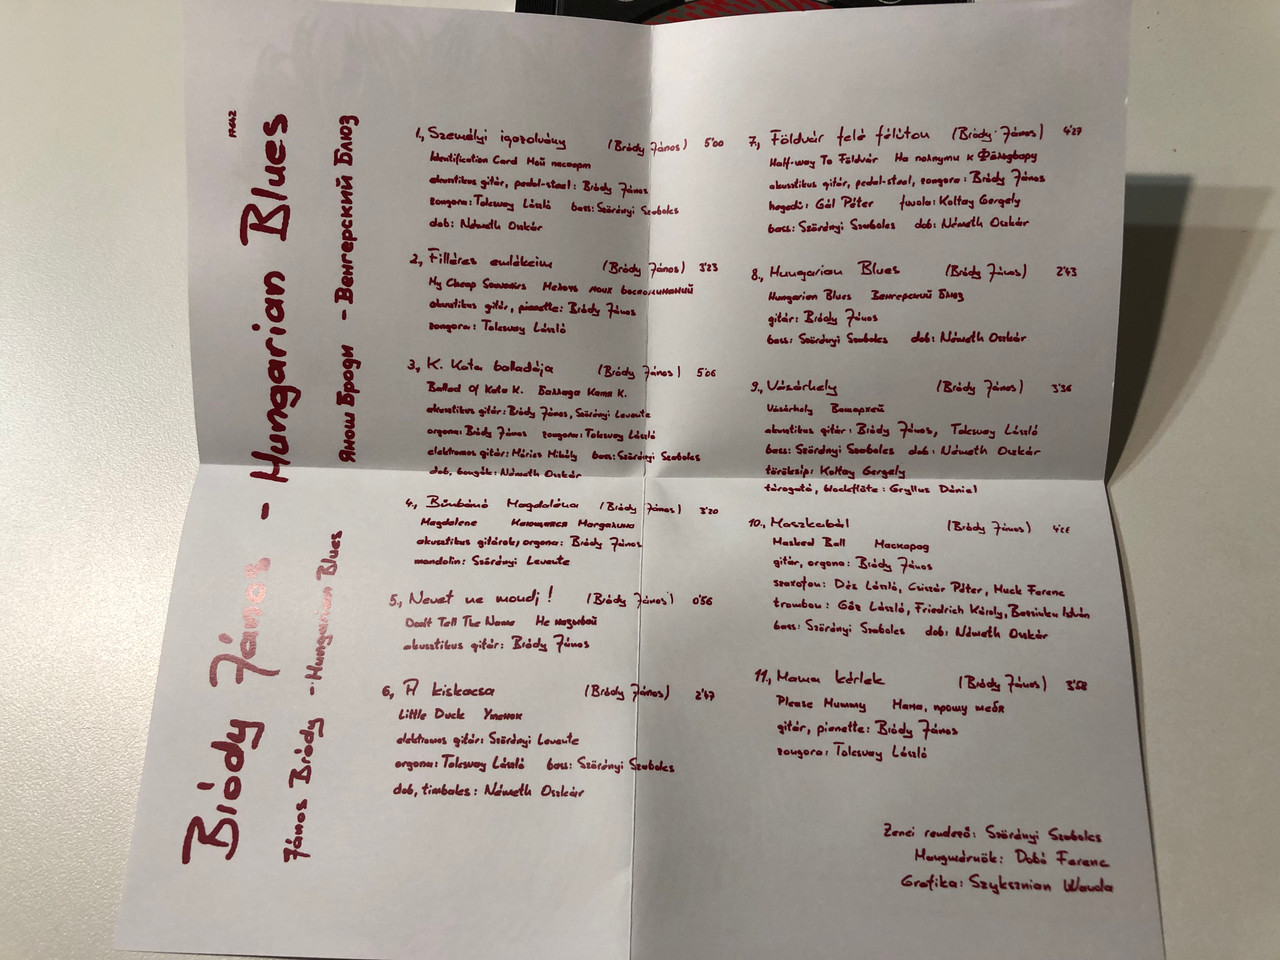 17642
Bródy János - Hungarian Blues
János Bródy - Hungarian Blues
Янош Броди - Венгерский Блюз
1., Személyi igazolvány (Bródy János) 5'00
Identification Card Мой паспорт
akusztikus gitár, pedal-steel: Bródy János
zongora: Tolcsvay László bass: Szörényi Szabolcs
dob: Németh Oszkár
2., Filléres emlékeim (Bródy János) 3'23
My Cheap Souvenirs Мелочь моих воспоминаний
akusztikus gitár, pianette: Bródy János
zongora: Tolcsvay László
3., K. Kata balladája (Bródy János) 5'06
Ballad Of Kata K. Баллада Катя К.
akusztikus gitár: Bródy János, Szörényi Levente
orgona: Bródy János zongora: Tolcsvay László
elektromos gitár: Móricz Mihály bass: Szörényi Szabolcs
dob, bongók: Németh Oszkár
4., Bűnbánó Magdaléna (Bródy János) 3'20
Magdalene Кающаяся Магдалина
akusztikus gitárok, orgona: Bródy János
mandolin: Szörényi Levente
5., Nevet ne mondj! (Bródy János) 0'56
Don't Tell The Name Не называй
akusztikus gitár: Bródy János
6., A kiskacsa (Bródy János) 2'47
Little Duck Утенок
elektromos gitár: Szörényi Levente
orgona: Tolcsvay László bass: Szörényi Szabolcs
dob, timbales: Németh Oszkár
7., Földvár felé félúton (Bródy János) 4'27
Half-way To Földvár На полпути к Фёльдвару
akusztikus gitár, pedal-steel, zongora: Bródy János
hegedű: Gál Péter fuvola: Koltay Gergely
bass: Szörényi Szabolcs dob: Németh Oszkár
8., Hungarian Blues (Bródy János) 2'43
Hungarian Blues Венгерский Блюз
gitár: Bródy János
bass: Szörényi Szabolcs dob: Németh Oszkár
9., Vásárhely (Bródy János) 3'36
Vásárhely Вашархей
akusztikus gitár: Bródy János, Tolcsvay László
bass: Szörényi Szabolcs dob: Németh Oszkár
töröksíp: Koltay Gergely
tárogató, blockflöte: Gryllus Dániel
10., Maszkabál (Bródy János)
Masked Ball Маскарад
gitár, orgona: Bródy János
szaxofon: Dés László, Csiszár Péter, Muck Ferenc
trombon: Gőz László, Friedrich Károly, István
bass: Szörényi Szabolcs dob: Németh Oszkár
11., Mama kérlek (Bródy János) 3'58
Please Mummy Мама, прошу тебя
gitár, pianette: Bródy János
zongora: Tolcsvay László
Zenei rendező: Szörényi Szabolcs
Hangmérnök: Dobó Ferenc
Grafika: Szyksznian Wanda